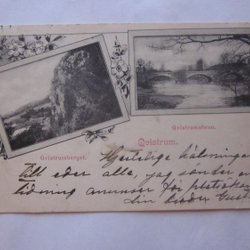 Qvistrumsbron.
Qvistrumsberget.
Qvistrum.
Hjertliga helsningar
Till eder alla, jag sänder en
tidning annonser för
Din broder